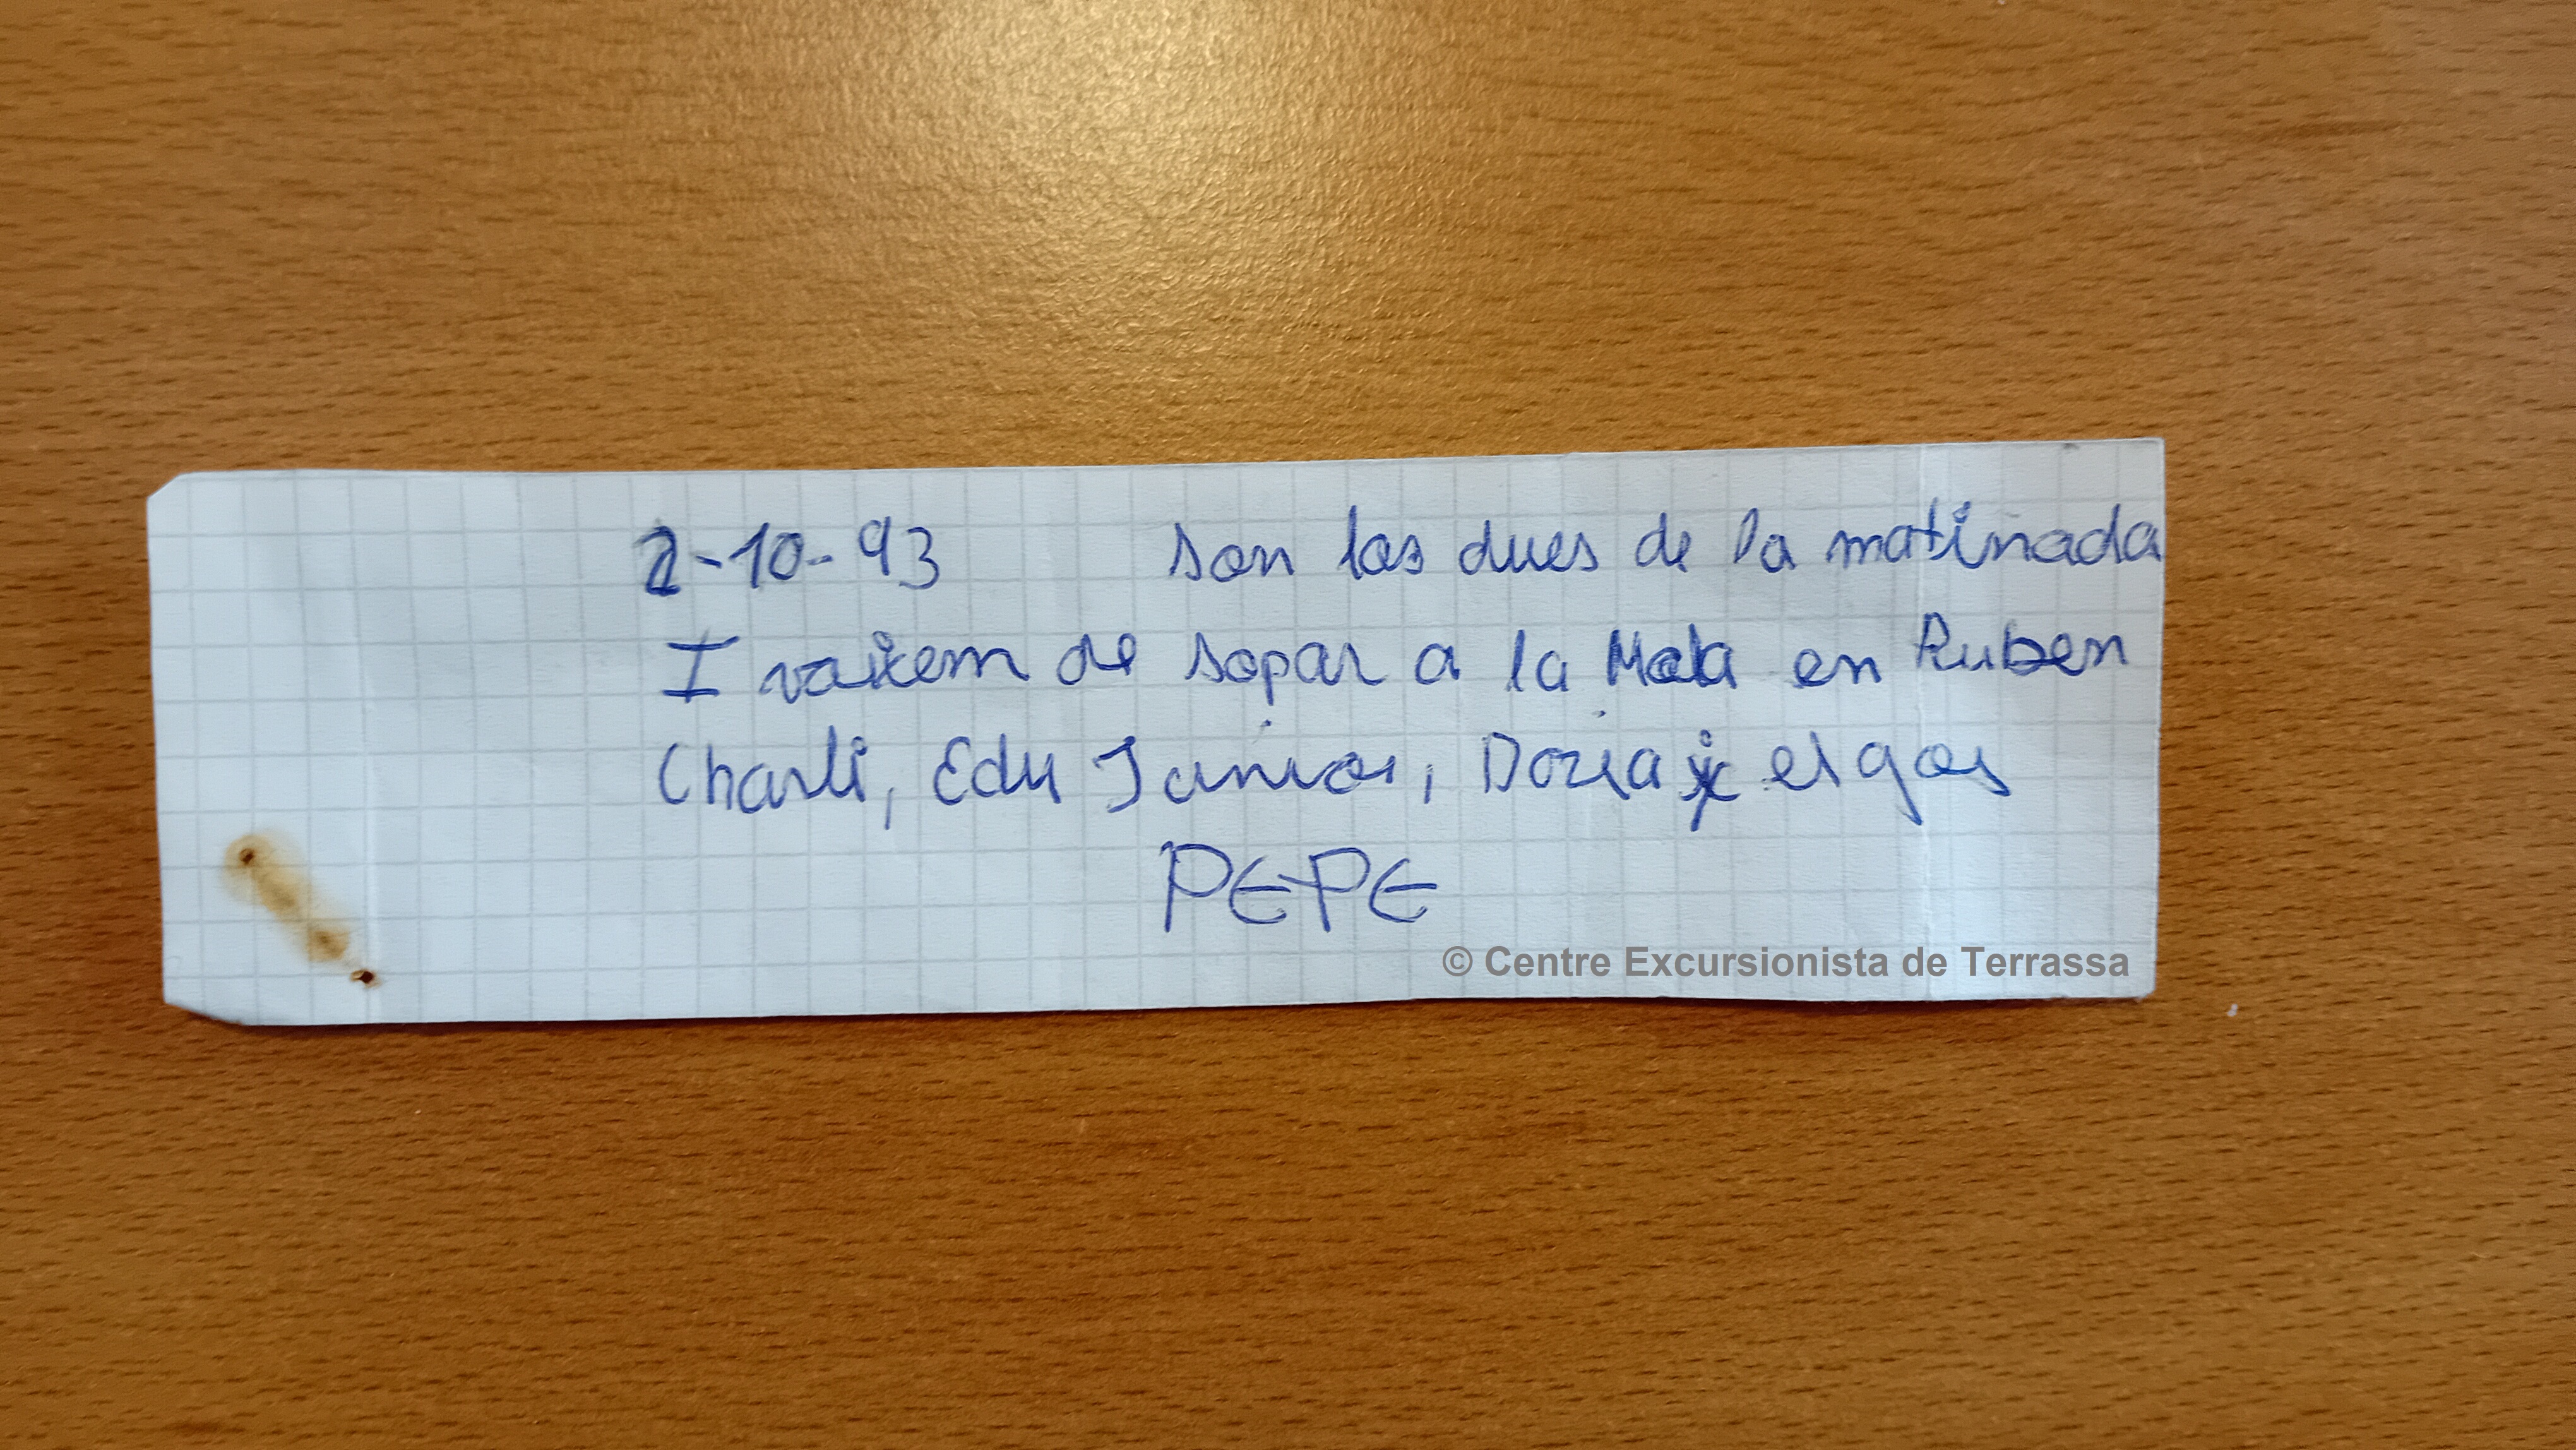 2-10-93 son las dues de la matinada
I vaixem de sopar a la Mola en Ruben
Charli, Edu Junior, Doria i el gos
PEPE
© Centre Excursionista de Terrassa